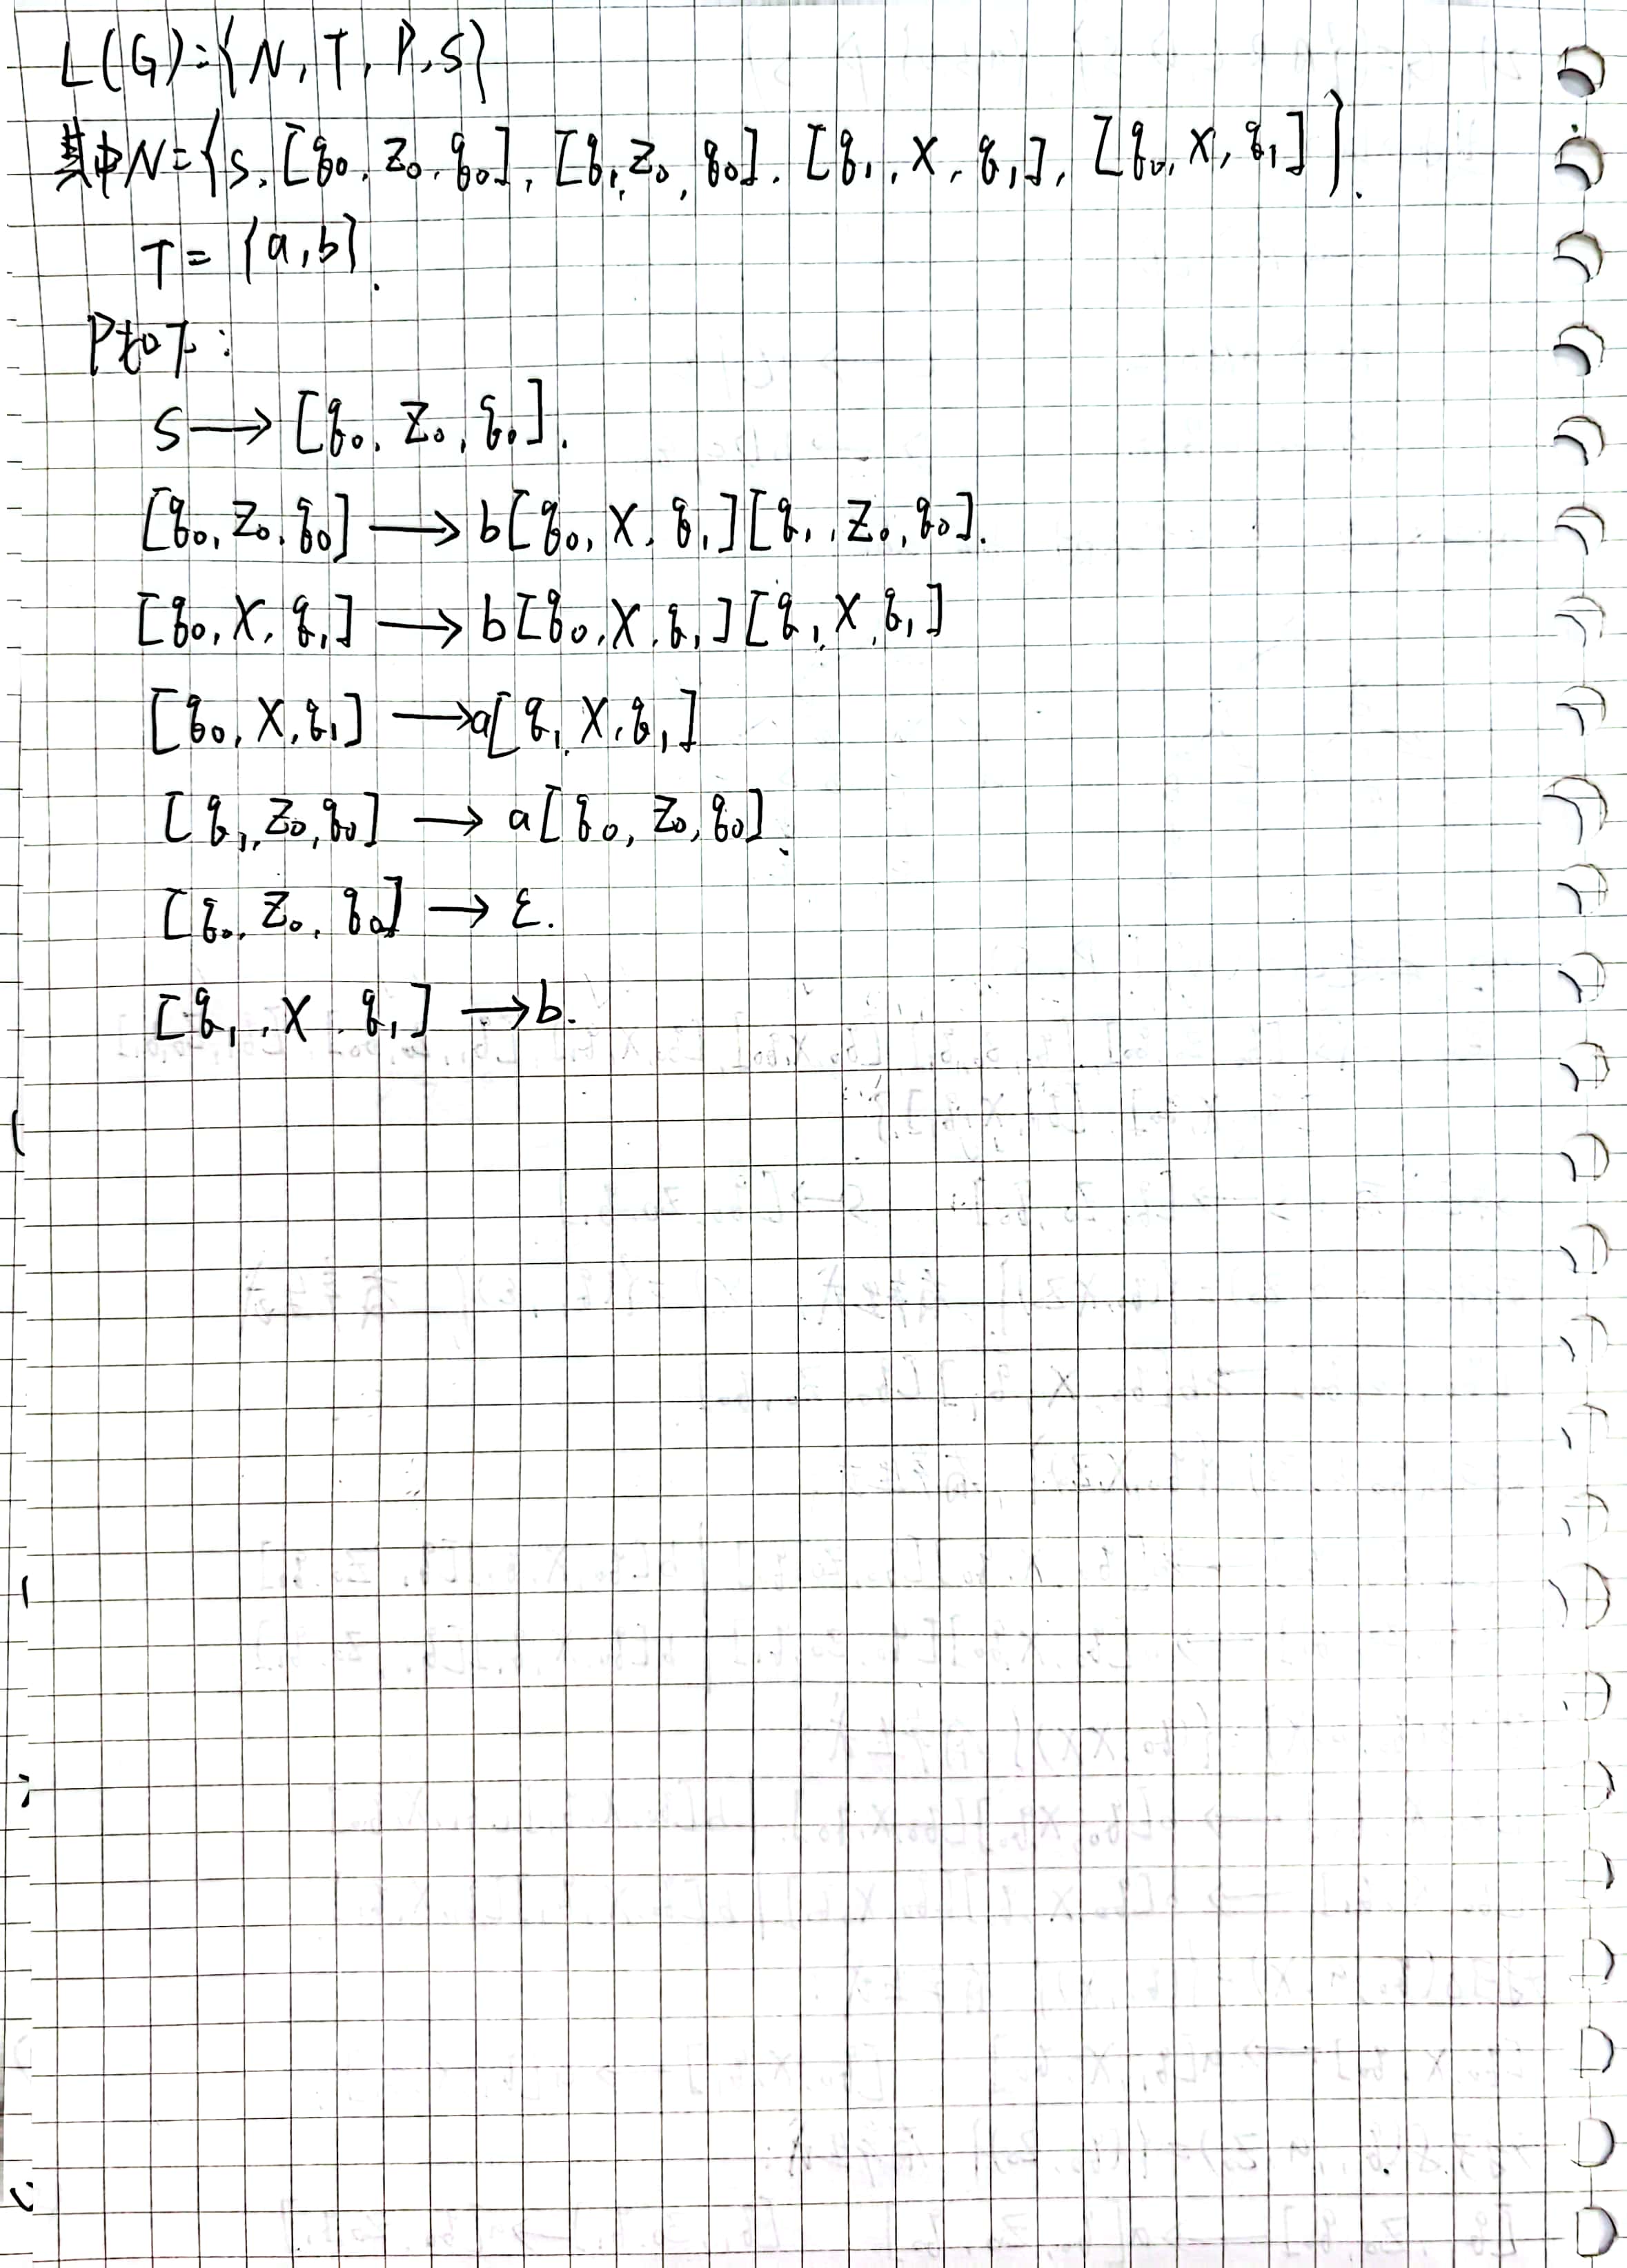 L(G)={N, T, P, S}
其中N={S, [q₀, Z₀, q₀], [q₁, Z₀, q₀], [q₁, X, q₁], [q₀, X, q₁]}.
T={a,b}.
P如下:
S→[q₀, Z₀, q₀].
[q₀, Z₀, q₀]→b[q₀, X, q₁][q₁, Z₀, q₀].
[q₀, X, q₁]→b[q₀, X, q₁][q₁, X, q₁]
[q₀, X, q₁]→a[q₁, X, q₁]
[q₁, Z₀, q₀]→a[q₀, Z₀, q₀].
[q₀, Z₀, q₀]→ε.
[q₁, X, q₁]→b.